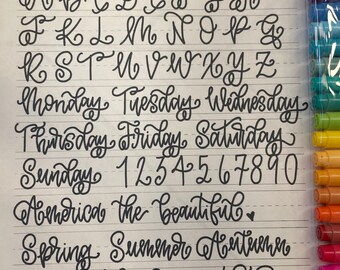 A B C D E F G H I
J K L M N O P Q
R S T U V W X Y Z
Monday Tuesday Wednesday
Thursday Friday Saturday
Sunday 1 2 3 4 5 6 7 8 9 0
America the beautiful
Spring Summer Autumn